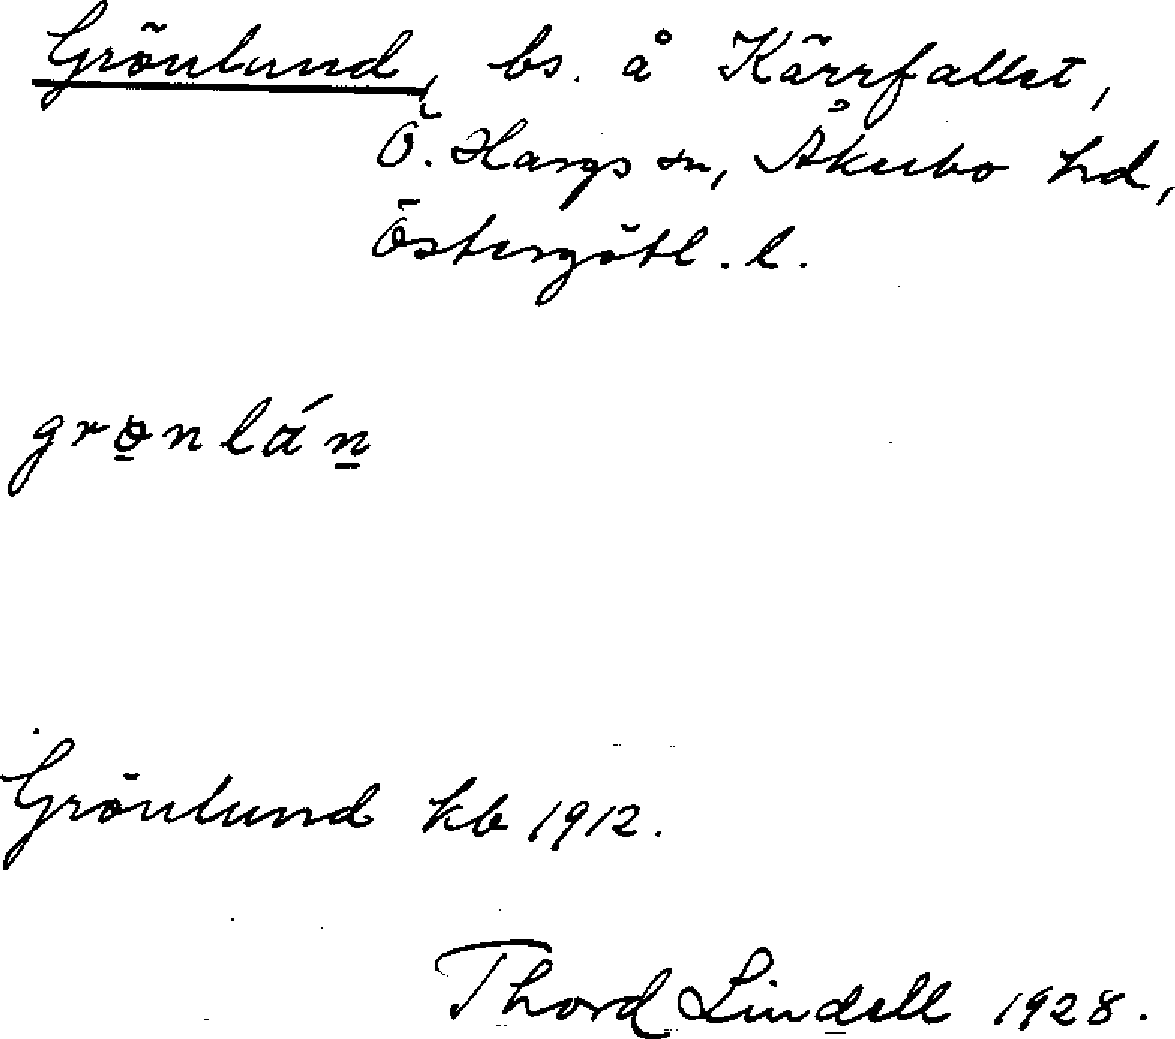 Grönlund, bs. å Kärrfallet,
Ö. Hargs sn, Åkerbo hd,
Östergötl. l.
Grönlund kb 1912.
Thord Lindell 1928.